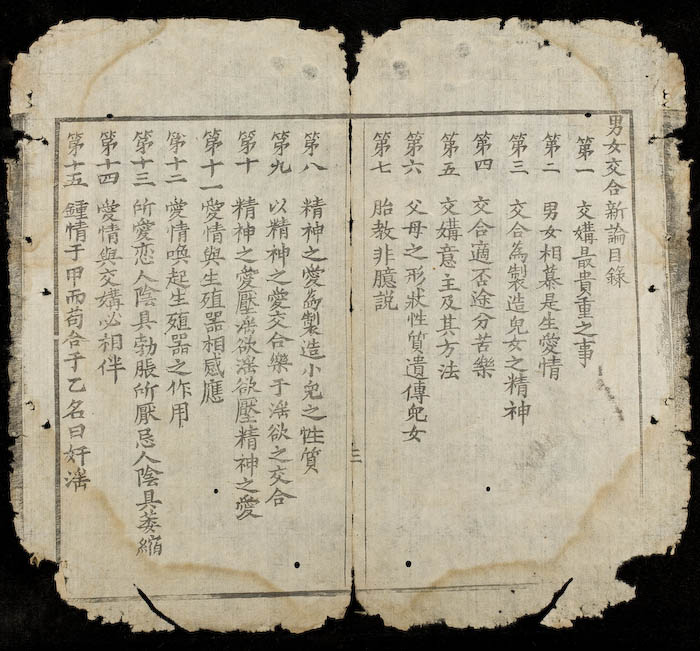 男女交合新論目錄
第一 交媾最貴重之事
第二 男女相慕是生愛情
第三 交合為製造兒女之精神
第四 交合適否途分苦樂
第五 交媾意主及其方法
第六 父母之形狀性質遺傳兒女
第七 胎教非臆説
三
第八 精神之愛為製造小兒之性質
第九 以精神之愛交合樂于淫欲之交合
第十 精神之愛壓淫欲淫欲壓精神之愛
第十一 愛情與生殖器相感應
第十二 愛情喚起生殖器之作用
第十三 所愛戀人陰具勃脹所厭忌人陰具萎縮
第十四 愛情與交媾必相伴
第十五 鍾情于甲而苟合于乙名曰奸淫